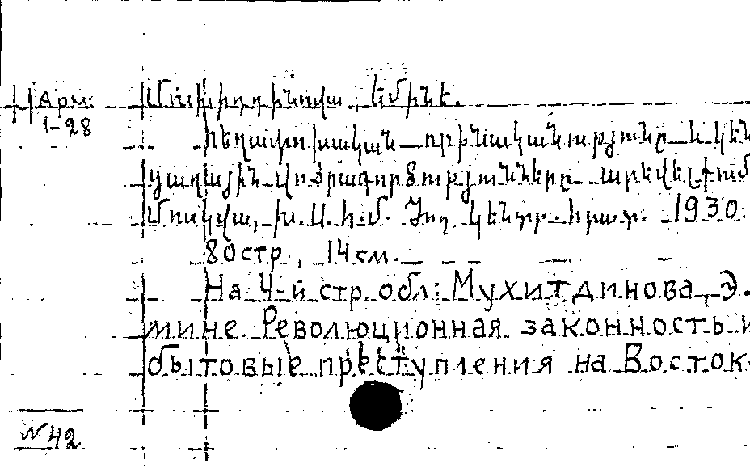 Арм.
1-28
Մուխիդդինովա, Եմինե.
Հեղափոխական օրինականությունը և կեն
ցաղային հանցագործությունները արևելքում
Մոսկվա, Խ.Ս.Ի.Մ. Ժող. կենտր. հրատ. 1930
80 стр, 14 см.
На 4-й стр. обл: Мухитдинова, Э.
мине. Революционная законность и
бытовые преступления на Восток
№42